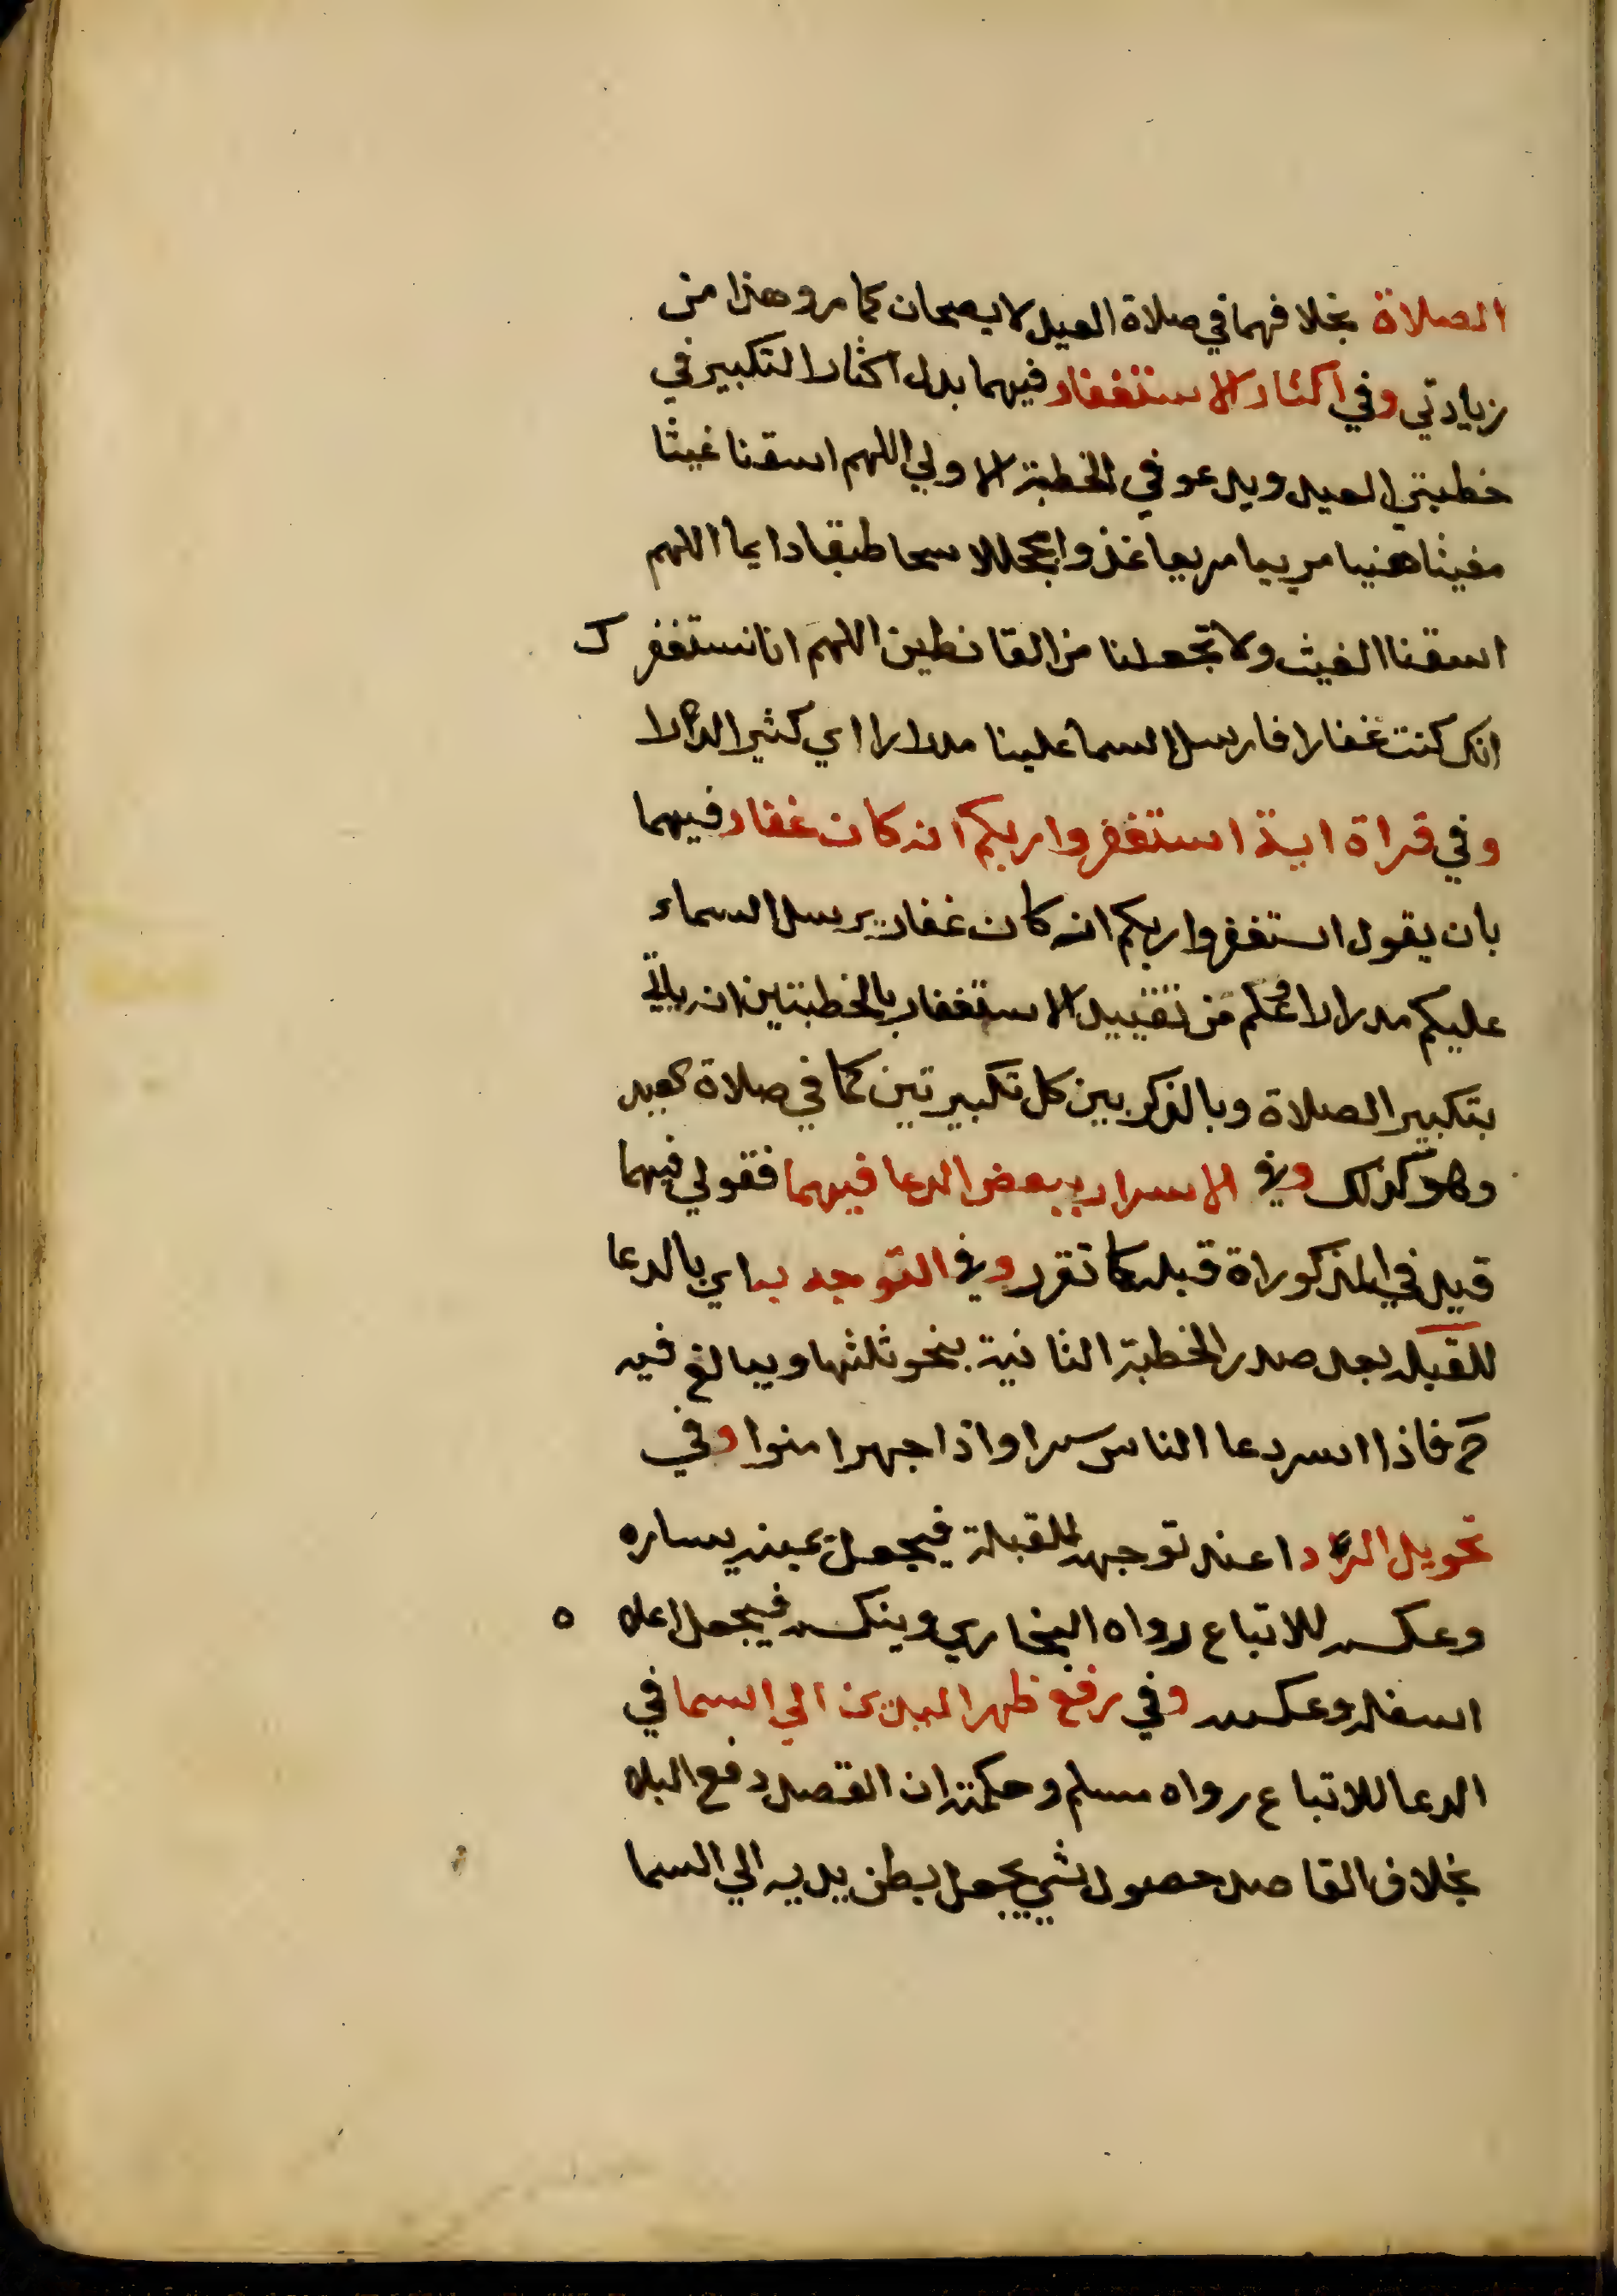 الصلاة بخلافهما في صلاة العيد لا يصحان كما مر وهذا من
زيادتي وفي اكثار الاستغفار فيهما بدل اكثار التكبير في
خطبتي العيد ويدعو في الخطبة الاولي اللهم اسقنا غيثا
مغيثا هنيا مريا مريعا غدوا مجللا سحا طبقا دايما اللهم
اسقنا الغيث ولا تجعلنا من القانطين اللهم انا نستغفرك
انك كنت غفارا فارسل السما علينا مدرارا اي كثير الدر الا
وفي قراة اية استغفروا ربكم انه كان غفار فيهما
بان يقول استغفروا ربكم انه كان غفار يرسل السماء
عليكم مدرارا من تقييد الاستغفار بالخطبتين انه ياتي
بتكبير الصلاة وبالذكر بين كل تكبيرتين كما في صلاة كعيد
وهو كذلك وفي الاسرار ببعض الدعا فيهما فقولي فيهما
قيد في المذكوراة قبله كما تقرر وفي التوجه به اي بالدعا
للقبله بعد صدر الخطبة الثانية بنحو ثلثها ويبالغ فيه
ح فاذا اسر دعا الناس سرا واذا جهر امنوا وفي
تحويل الردا عند توجهه للقبلة فيجعل يمينه يساره
وعكسه للاتباع رواه البخاري وينكسه فيجعل اعلاه
اسفله وعكسه وفي رفع ظهر اليدين الي السما في
الدعا للاتباع رواه مسلم وحكمته ان القصد دفع البلا
بخلاف القاصد حصول شي يجعل بطن يديه الي السما